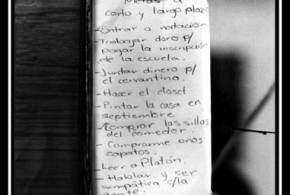 Metas a
corto y largo plazo
- Entrar a natación
- Trabajar duro p/
pagar la inscripción
de la escuela.
- Juntar dinero p/
el cervantino.
- Hacer el closet
- Pintar la casa en
septiembre
- Comprar las sillas
del comedor.
- Comprarme unos
zapatos.
- Leer a Platón.
- Hablar y ser
simpática c/la
gente.